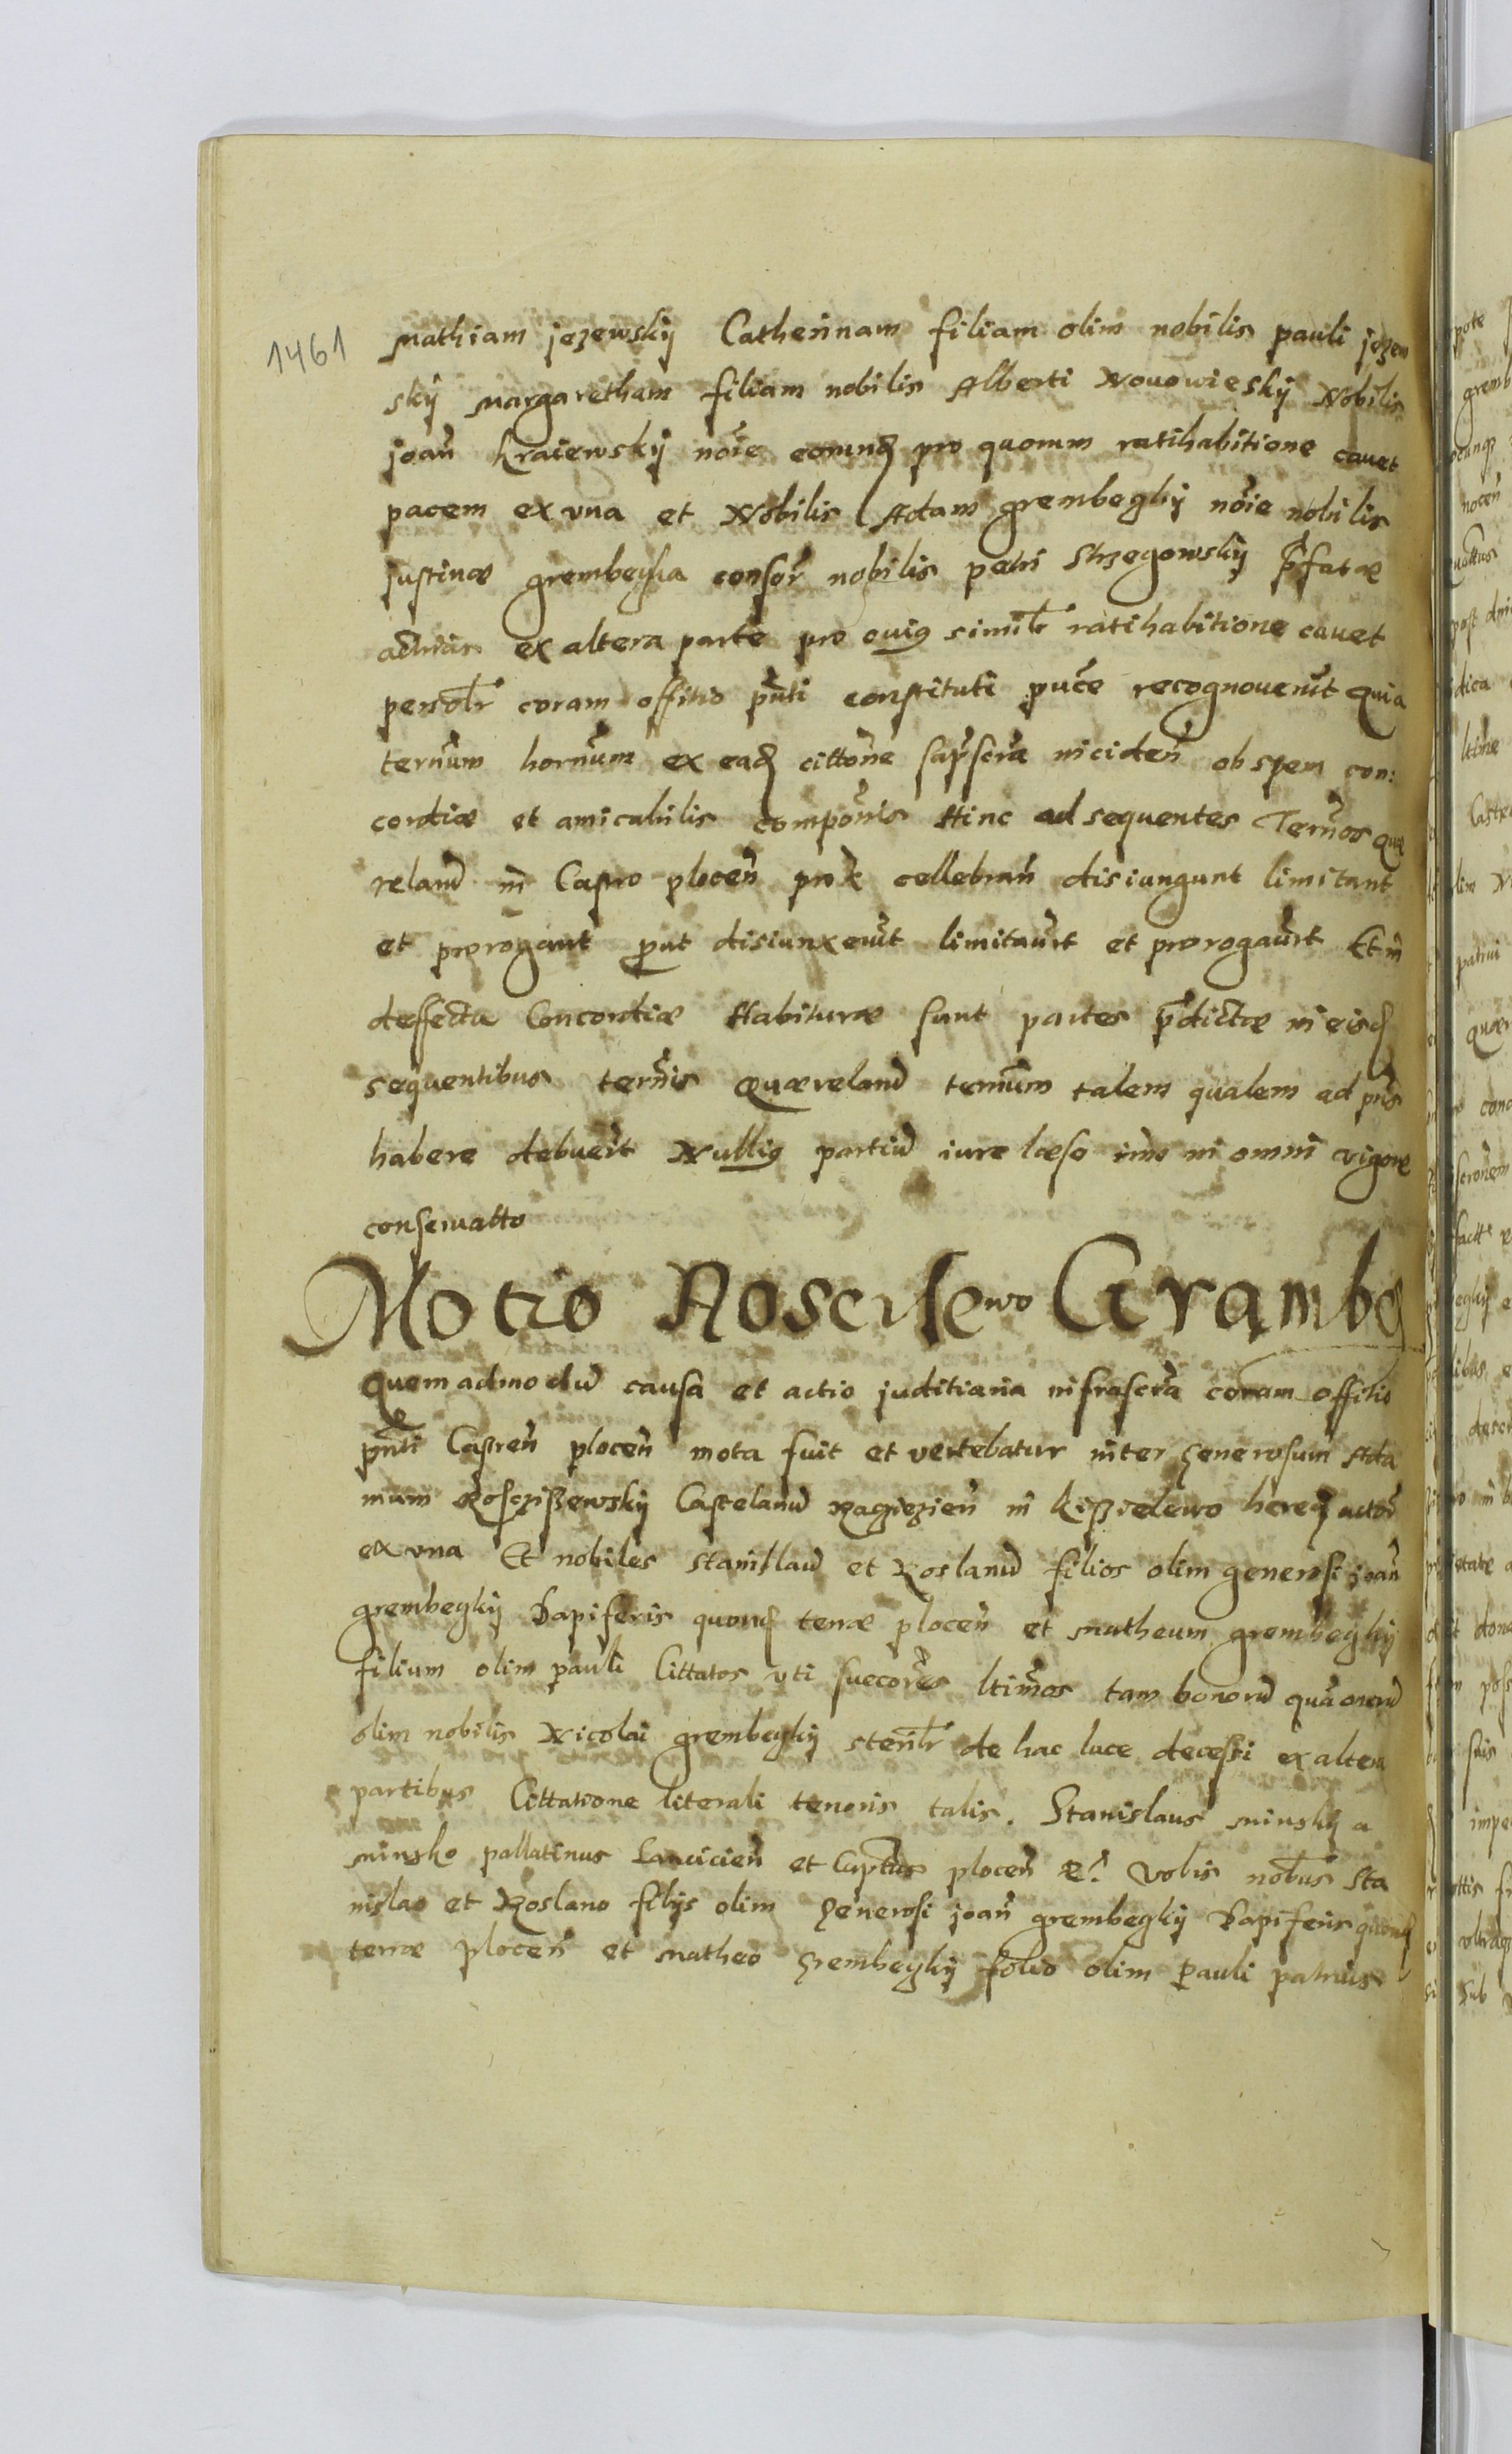 1461
Mathiam jezewskÿ Catherinam filiam olim nobilis pauli jezew
skÿ Margaretham filiam nobilis Alberti Nouowieskÿ Nobilis
joan̄ Kraiewskÿ no͠ie eorund pro quorum ratihabitione cauet
pacem ex vna et Nobilis Adam grembeczkÿ no͠ie nobilis
justinæ grembeczka consor̄ nobilis petri Strzegowskÿ p̄fatæ
actricis ex altera parte pro cuiꝰ simil̄r ratihabitione cauet
persol̄r coram offitio pn̄ti constituti pu͠ce recognouerūt quia
ter͠num hor͠num ex ead citto͠ne sap͠scra inciden̄ ob spem con:
cordiæ et amicabilis compo͠nis Hinc ad sequentes Ter͠nos quæ
reland in Castro plocen̄ prox cellebran̄ disiungunt limitant
et prorogant p̄ut disiunxerūt limitaūrt et prorogaūrt Et in
deffectu Concordiæ Habituræ sunt partes p̄dictæ in eisd
sequentibus ter͠nis quæreland ter͠num talem qualem ad pn̄s
habere debuerūt Nulliꝰ partiū iure læso imo in omni vigore
conseruatto
Motio Roscisewo Grambe
Quemadmodū causa et actio juditiaria infrascra͠ coram offitio
pn̄ti Castren̄ plocen̄ mota fuit et vertebatur inter generosum Ada
mum Rosczißewskÿ Castelanū Raczięzien̄ in kißielewo hered actor̄
ex vna Et nobiles Stanislaū et Roslanū filios olim generosi joan̄
grembeczkÿ Dapiferis quond terræ plocen̄ et Matheum grembeczkÿ
filium olim pauli Cittatos vti succo͠res lti͠mos tam bonorū quā onerū
olim nobilis Nicolai grembeczkÿ steril̄r de hac luce decessi ex altera
partibus Cittatione literali tenoris talis. Stanislaus minskÿ a
minsko pallatinus Lancicien̄ et Capt͠us plocen̄ &c. Vobis nob̄us Sta
nislao et Roslano filÿs olim generosi joan̄ grembeczkÿ Dapiferis quond
terræ plocen̄ et Matheo grembeczkÿ filio olim pauli patruis